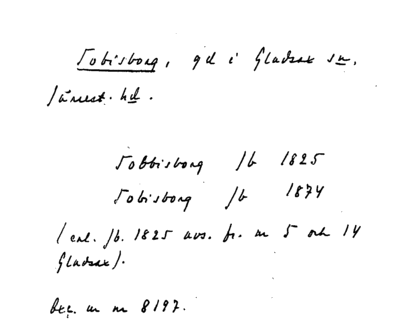 Tobisborg, gd i Gladsax sn,
Järrest. hd.
Tobbisborg Jb 1825
Tobisborg Jb 1874
(enl. Jb. 1825 avs. fr. nr 5 och 14
Gladsax).
nr 8197.